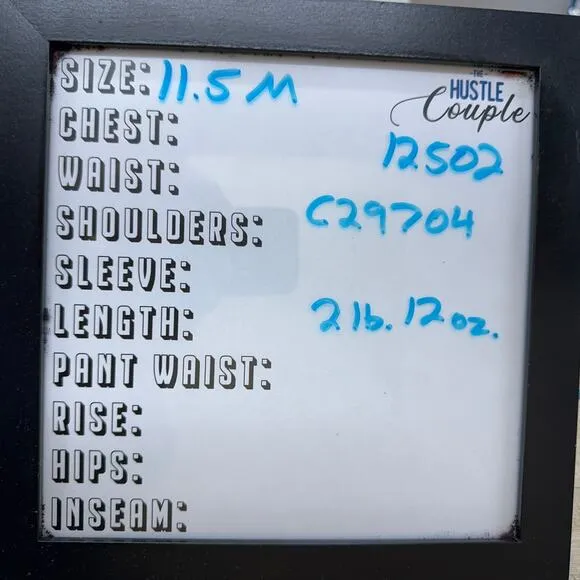 SIZE: 11.5 M
-THE-
HUSTLE
Couple
CHEST:
12502
WAIST:
SHOULDERS: C29704
SLEEVE:
LENGTH: 2 lb. 12 oz.
PANT WAIST:
RISE:
HIPS:
INSEAM: